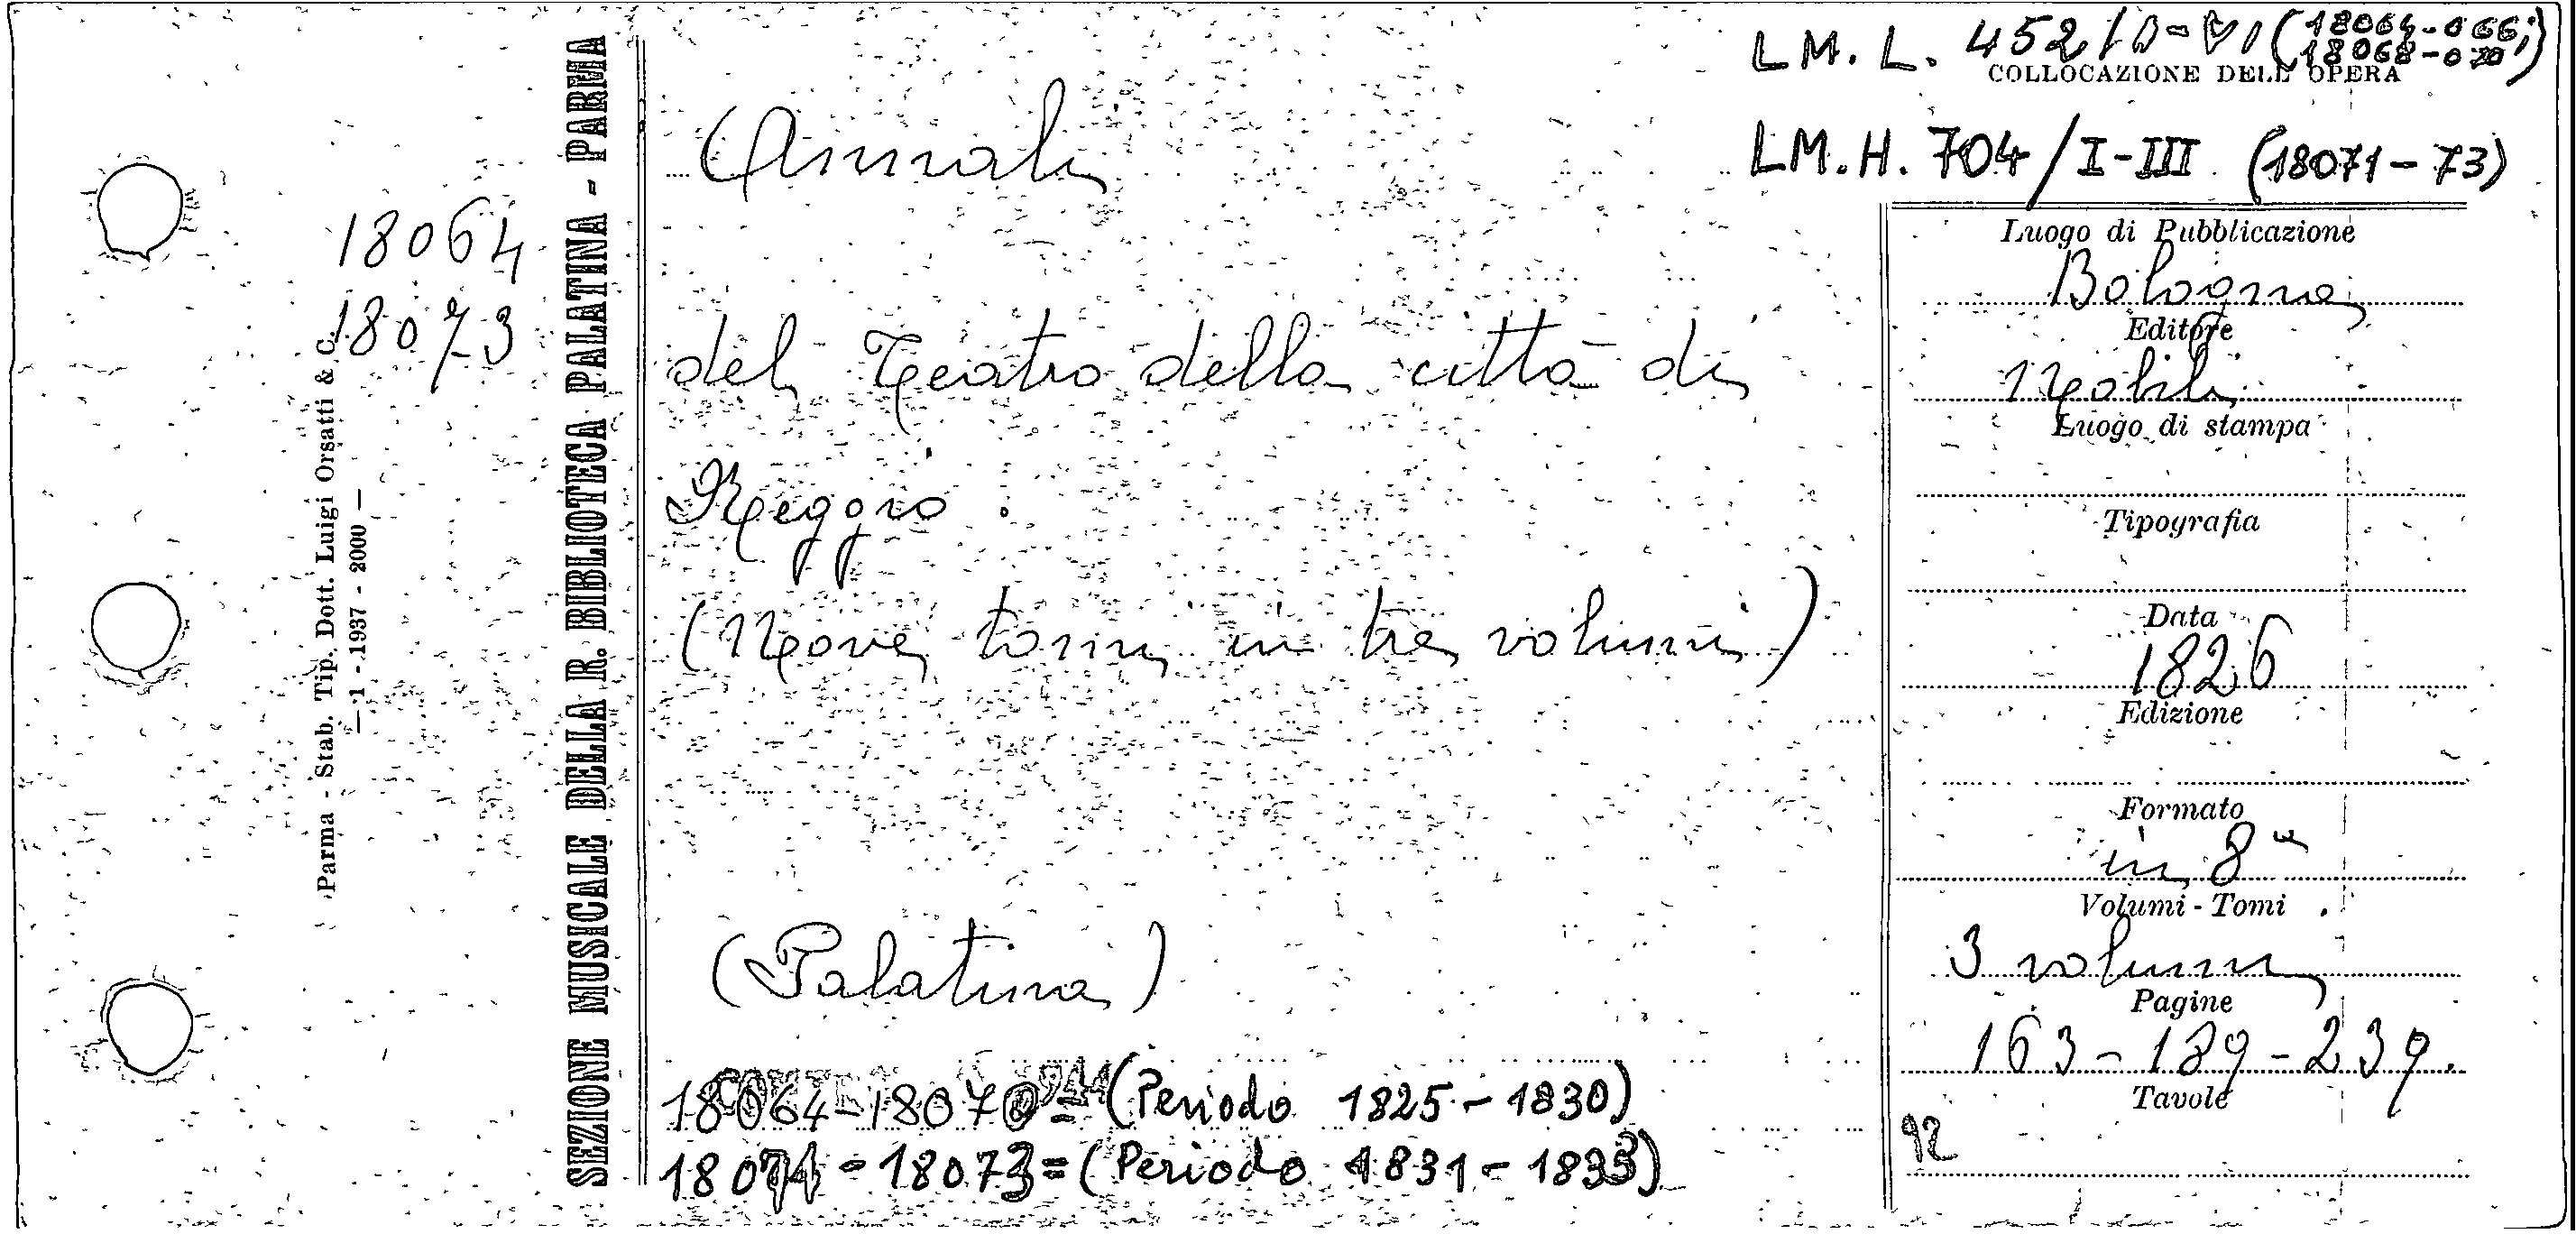 LM. L. 452/I-VI (18064-066;
18068-070)
COLLOCAZIONE DELL' OPERA
LM. H. 704/I-III (18071-73)
18064
18073
Parma - Stab. Tip. Dott. Luigi Orsatti & C.
— 1 - 1937 - 2000 —
SEZIONE MUSICALE DELLA R. BIBLIOTECA PALATINA - PARMA
(Annali
del Teatro della città di
Reggio :
(Nove tomi in tre volumi)
(Palatina)
18064-18070= (Periodo 1825-1830)
18071-18073= (Periodo 1831-1833)
Luogo di Pubblicazione
Bologna
Editore
Nobili
Luogo di stampa
Tipografia
Data
1826
Edizione
Formato
in 8°
Volumi - Tomi
3 volumi
Pagine
163-189-239.
Tavole
92